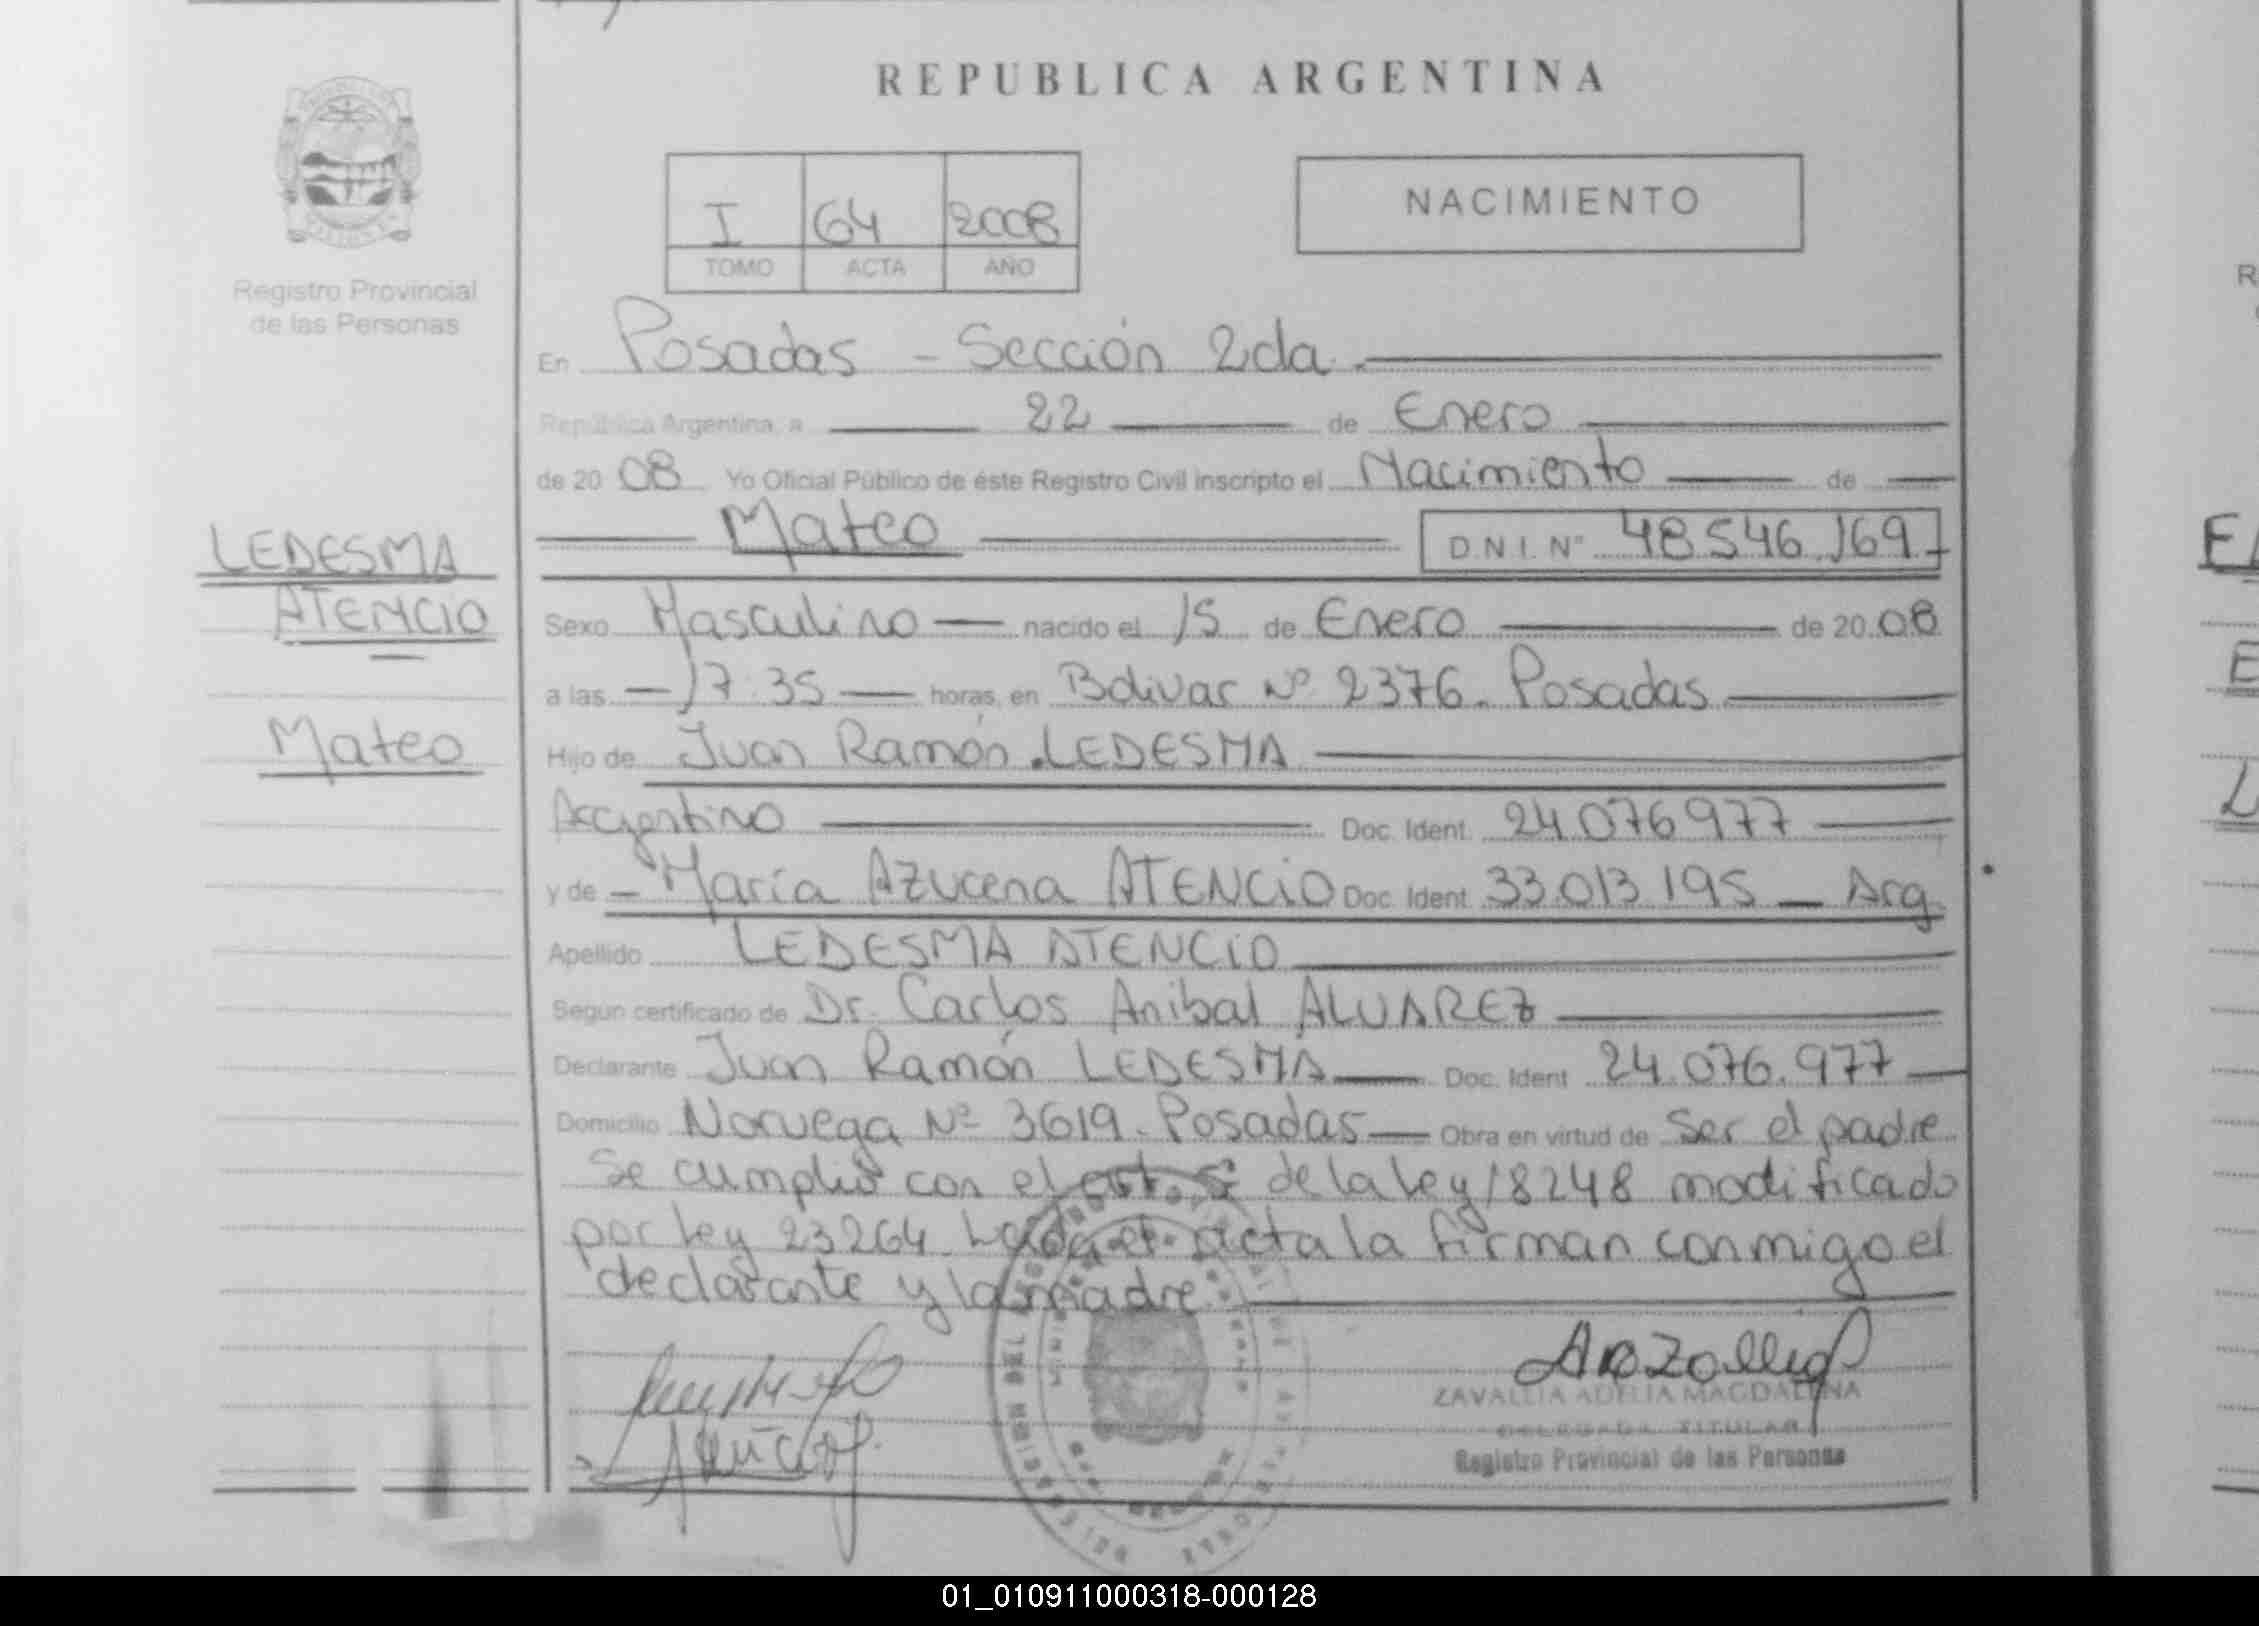 REPUBLICA ARGENTINA
I 64 2008
TOMO ACTA AÑO
NACIMIENTO
Registro Provincial
de las Personas
En Posadas - Sección 2da.
República Argentina, a 22 de Enero
de 20 08 Yo Oficial Público de éste Registro Civil inscripto el Nacimiento de
Mateo D.N.I. Nº 48.546.169
LEDESMA
ATENCIO
Mateo
Sexo Masculino nacido el 15 de Enero de 20 08
a las 17:35 horas, en Bolivar Nº 2376. Posadas
Hijo de Juan Ramón LEDESMA
Argentino Doc. Ident. 24076977
y de María Azucena ATENCIO Doc. Ident. 33.013.195 Arg.
Apellido LEDESMA ATENCIO
Segun certificado de Dr. Carlos Anibal ALVAREZ
Declarante Juan Ramón LEDESMA Doc. Ident 24.076.977
Domicilio Noruega Nº 3619. Posadas Obra en virtud de ser el padre
Se cumplió con el art. 5º de la ley 18248 modificado
por ley 23264. Leida el acta la firman conmigo el
declarante y la madre.
ZAVALLIA ADELIA MAGDALENA
DELEGADA TITULAR
Registro Provincial de las Personas
01_010911000318-000128